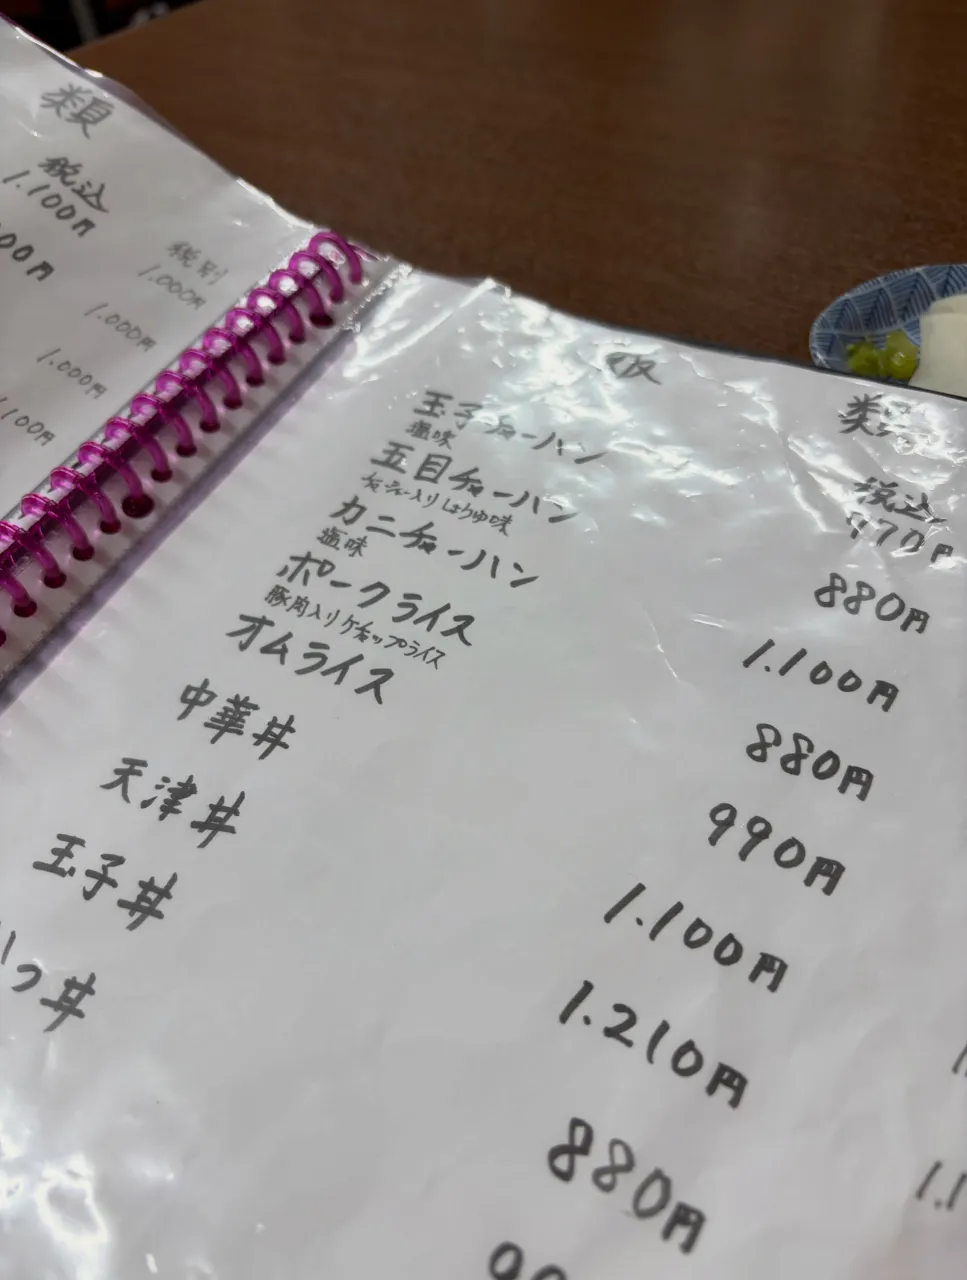 類
税込
1.100円
00円
税別
1.000円
1.000円
1.000円
100円
飯 類
税込
玉子チャーハン 770円
塩味
五目チャーハン 880円
チャーシュー入りしょうゆ味
カニチャーハン 1.100円
塩味
ポークライス 880円
豚肉入りケチャップライス
オムライス 990円
中華丼 1.100円
天津丼 1.210円
玉子丼 880円
ツ丼
1.1